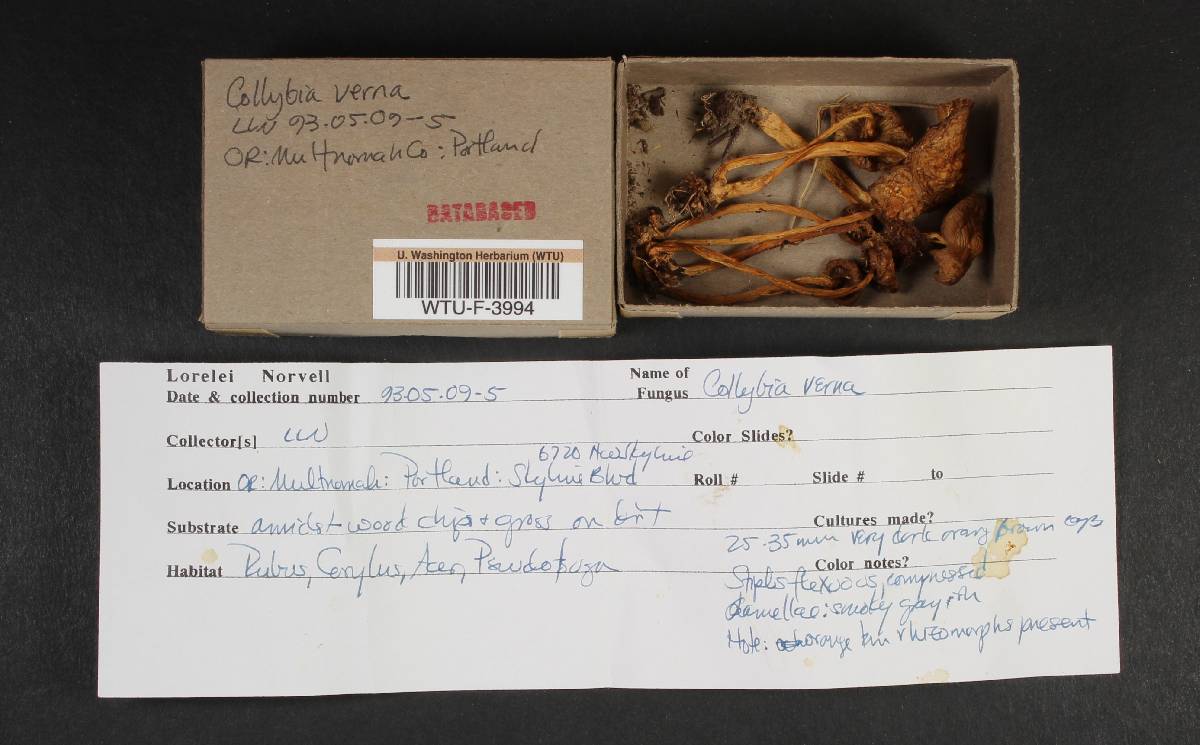 Collybia verna
LLN 93.05.09-5
OR: Multnomah Co: Portland
DATABASED
U. Washington Herbarium (WTU)
WTU-F-3994
Lorelei Norvell
Date & collection number 93.05.09-5
Name of Fungus Collybia verna
Collector[s] LLN
Color Slides?
6720 NW Skyline
Location OR: Multnomah: Portland: Skyline Blvd
Roll # Slide # to
Substrate amidst wood chips + grass on dirt
Cultures made?
25-35mm very dark orange brown caps
Habitat Rubus, Corylus, Acer, Pseudotsuga
Color notes?
Stipes flexuous, compressed
Lamellae: smoky gray
Note: orange brn rhizomorphs present